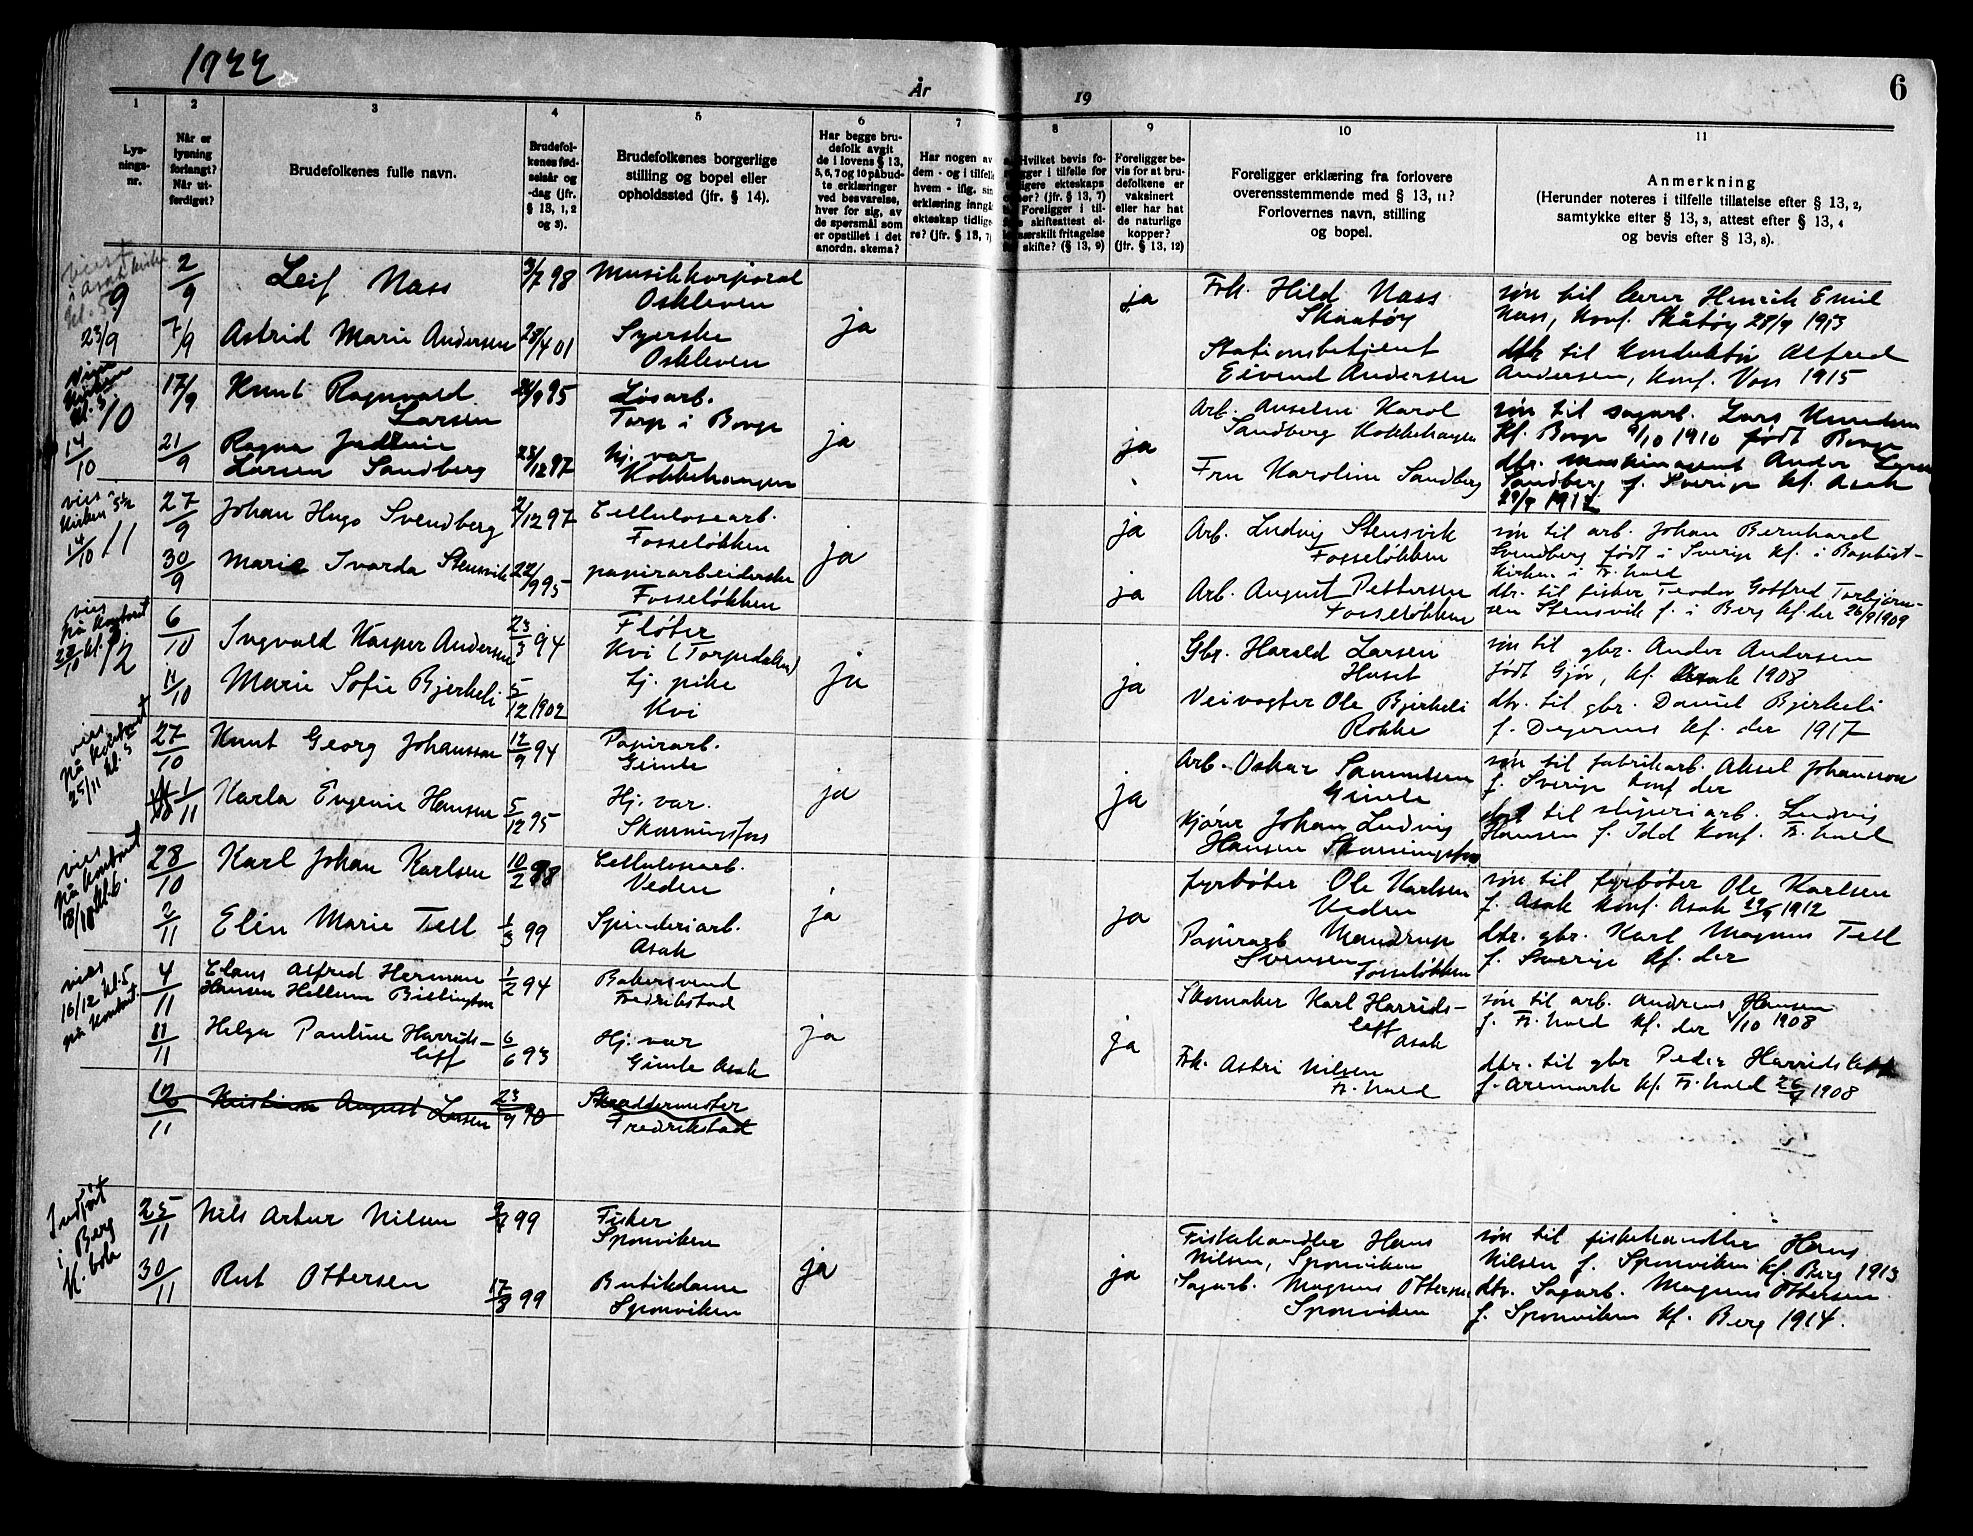 1922
År
19
6
1
2
3
4
5
6
7
8
9
10
11
Lys-
nings-
nr.
Når er
lysning
forlangt?
Når ut-
ferdiget?
Brudefolkenes fulle navn.
Brudefol-
kenes fød-
selsår og
-dag (jfr.
§ 13, 1, 2
og 3).
Brudefolkenes borgerlige
stilling og bopel eller
opholdssted (jfr. § 14).
Har begge bru-
defolk avgit
de i lovens § 13,
5, 6, 7 og 10 påbud-
te erklæringer
ved besvarelse,
hver for sig, av
de spørsmål som
er opstillet i det
anordn. skema?
Har nogen av
dem - og i tilfelle
hvem - iflg. sin
erklæring inngå
ekteskap tidlige
re? (jfr. § 13, 7)
Hvilket bevis fo-
gger i tilfelle for
ligere ekteskaps
? (jfr. § 13, 7)
Foreligger i til-
skifteattest el-
særskilt fritagelse
skifte? (§ 13, 9)
Foreligger be-
vis for at bru-
defolkene er
vaksinert
eller har hat
de naturlige
kopper?
(jfr. § 13, 12)
Foreligger erklæring fra forlovere
overensstemmende med § 13, 11?
Forlovernes navn, stilling
og bopel.
Anmerkning
(Herunder noteres i tilfelle tillatelse efter § 13, 2,
samtykke efter § 13, 3, attest efter § 13, 4
og bevis efter § 13, 8).
9
23/9
2/9
7/9
Leif Nass
3/7 98
Musikkorporal
Oskleven
Astrid Marie Andersen
28/4 01
Syerske
Oskleven
ja
ja
Frk. Hild Nass
Skaatøy
Stationsbetjent
Eivend Andersen
søn til lærer Henrik Emil
Nass, Konf. Skåtøy 28/9 1913
dtr til Konduktør Alfred
Andersen, Konf. Voss 1915
10
14/10
17/9
21/9
Knut Ragnvald
Larsen
Løsarb.
Torp i Borge
Ragna
Larsen Sandberg
23/12 97
Hj. var
Kokkehaugen
ja
ja
Arb. Anselm Karol
Sandberg Kokkehaugen
Fru Karoline Sandberg
søn til sagarb. Lars Knudsen
kf. Borge 9/10 1910 født Borge
Sandberg f. Sverige kf. Asak
1912
vies i
Kirken 5½
14/10
11
27/9
30/9
Johan Hugo Svendberg
2/12 97
Cellulosearb.
Fosseløkken
Marie Ivarda Stensvik
22/9 95
papirarbeiderske
Fosseløkken
ja
ja
ja
Arb. Ludvig Stensvik
Fosseløkken
Arb. August Pettersen
Fosseløkken
søn til arb. Johan Bernhard
Svendberg født i Sverige kf. i Baptist-
kirken i Fr.hald
dtr. til fisker Teodor Gotfred Torbjørn-
sen Stensvik f. i Berg kf. der 26/9 1909
vies
på kontoret
12
6/10
11/10
Ingvald Kasper Andersen
23/3 94
Fløter
Kvi (Torpedalen)
Marie Sofie Bjerkeli
5/12 1902
tj. pike
Kvi
ja
ja
Gbr. Harald Larsen
Huset
Veivogter Ole Bjerkeli
Rokke
søn til gbr. Ander Andersen
født Gjøv, kf. Asak 1908
dtr. til gbr. Daniel Bjerkeli
f. Degernes kf. der 1917
vies
på kontoret
25/11 kl. 5
27/10
1/11
Knut Georg Johansson
12/9 94
Papirarb.
Gimle
Karla Eugenie Hansen
5/12 95
Hj. var.
Skorningsfoss
ja
ja
Arb. Oskar Samuelsen
Gimle
Kjører Johan Ludvig
Hansen Skorningsfoss
søn til fabrikarb. Aksel Johansson
f. Sverige konf der
til sliperiarb. Ludvig
Hansen f. Idd konf. Fr.hald
vies
på kontoret
kl 6.
28/10
2/11
Karl Johan Karlsen
10/2 88
Cellulosearb.
Veden
Elin Marie Tell
1/3 99
Spinneriarb.
Asak
ja
ja
fyrbøter Ole Karlsen
Veden
Papirarb Mandrup
Svensen
Fosseløkken
søn til fyrbøter Ole Karlsen
f. Asak konf. Asak 29/9 1912
dtr. gbr. Karl Magnus Tell
f. Sverige kf. der
vies
16/12 kl. 5
på kontoret.
4/11
11/11
Claus Alfred Herman
Hansen Hellum Billington
1/2 94
Bakersvend
Fredrikstad
Helga Pauline Harrids-
leff
6/6 93
Hj. var
Gimle Asak
ja
ja
Skomaker Karl Harrids-
leff
Asak
Frk. Astri Nilsen
Fr.hald
søn til arb. Andreas Hansen
f. Fr.hald kf. der 4/10 1908
dtr. til gbr Peder Harridsleff
f. Aremark kf. Fr.hald 26/9 1908
12/11
Kristian August Larsen
23/9 90
Skreddermester
Fredrikstad
Indført
i Berg
K. bok
25/11
30/11
Nils Artur Nilsen
99
Fisker
Sponviken
Rut Ottersen
17/3 99
Butikdame
Sponviken
ja
ja
Fiskehandler Hans
Nilsen, Sponviken
Sagarb. Magnus Ottersen
Sponviken
søn til fiskehandler Hans
Nilsen f. Sponviken kf. Berg 1913
dtr. Sagarb. Magnus Ottersen
f. Sponviken kf. Berg 1914.